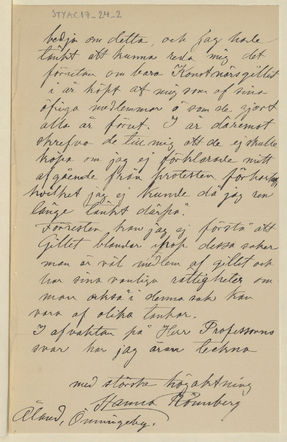 STYRC17_24_2
bedja om detta, och jag hade
tänkt att kunna reda mig det
förutan om bara Konstnärsgillet
i år köpt af mig som af sina
öfriga medlemmar å som de gjort
alla år förut. I år däremot
skrefvo de till mig att de ej skulle
köpa om jag ej förklarade mitt
afgående från protesten för
hvilket jag ej kunde då jag ren
länge tänkt därpå.
Förresten kan jag ej förstå att
Gillet blandar ihop dessa saker
man är väl medlem af gillet och
har sina vanliga rättigheter om
man också i denna sak kan
vara af olika tankar.
I afvaktan på Herr Professorns
svar har jag äran teckna
med största högaktning
Hanna Rönnberg
Åland, Önningeby.